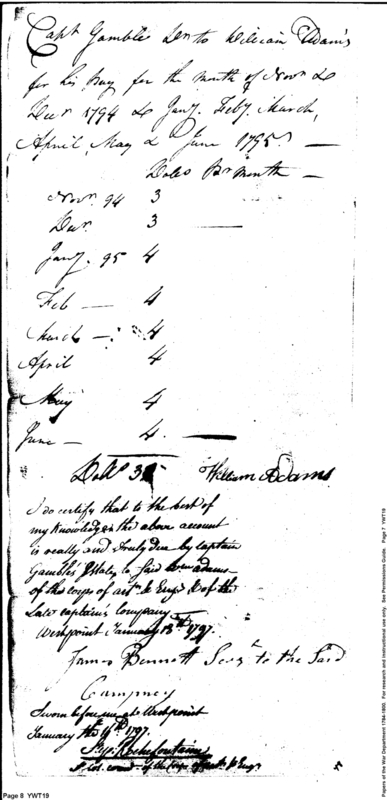 Capt Gamble Dr to William Adams
for his pay for the month of Novr &
Decr 1794 & Jany. Feby. March,
April, May & June 1795 —
Dolrs Pr month —
Novr 94 3
Decr 3 —
Jany. 95 4
Feb — 4
March — 4
April 4
May 4
June — 4 —
Dolls 30 William Adams
I do certify that to the best of
my Knowledge the above account
is really and Truly due by captain
Gamble's Estate to said Wm adams
of the corps of artts & Engrs & of the
Late captain's Company
Westpoint January 13th 1797.
James Bennett Sergt to the Said
Company
Sworn before me at Westpoint
January the 14th 1797.
Rochefontaine
Lt Col. comdt of the corps of artts & Engrs
Page 8 YWT19
Papers of the War Department 1784-1800. For research and instructional use only. See Permissions Guide. Page 7 YWT19